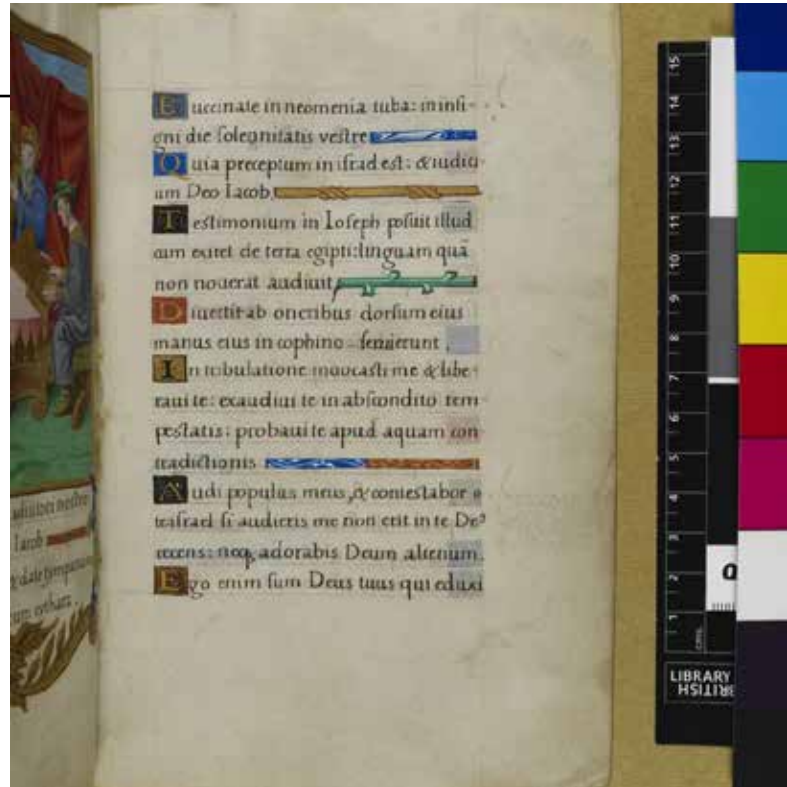 adiutori nostro
Iacob
& date tympanum
cum cythara.
Euccinate in neomenia tuba: in insi-
gni die solegnitatis vestre
Quia preceptum in israel est: & iudici-
um Deo Iacob.
Testimonium in Ioseph posuit illud
cum exiret de terra egipti: linguam quã
non nouerat audiuit
Diuertit ab oneribus dorsum eius
manus eius in cophino seruierunt.
In tribulatione inuocasti me & libe-
raui te: exaudiui te in abscondito tem-
pestatis: probaui te apud aquam con
tradictionis
Audi populus meus, & contestabor
te israel si audieris me non erit in te De⁹
recens: neq, adorabis Deum alienum.
Ego enim sum Deus tuus qui eduxi
15
14
13
12
11
10
9
8
7
6
5
4
3
2
1
cms.
LIBRARY
BRITISH